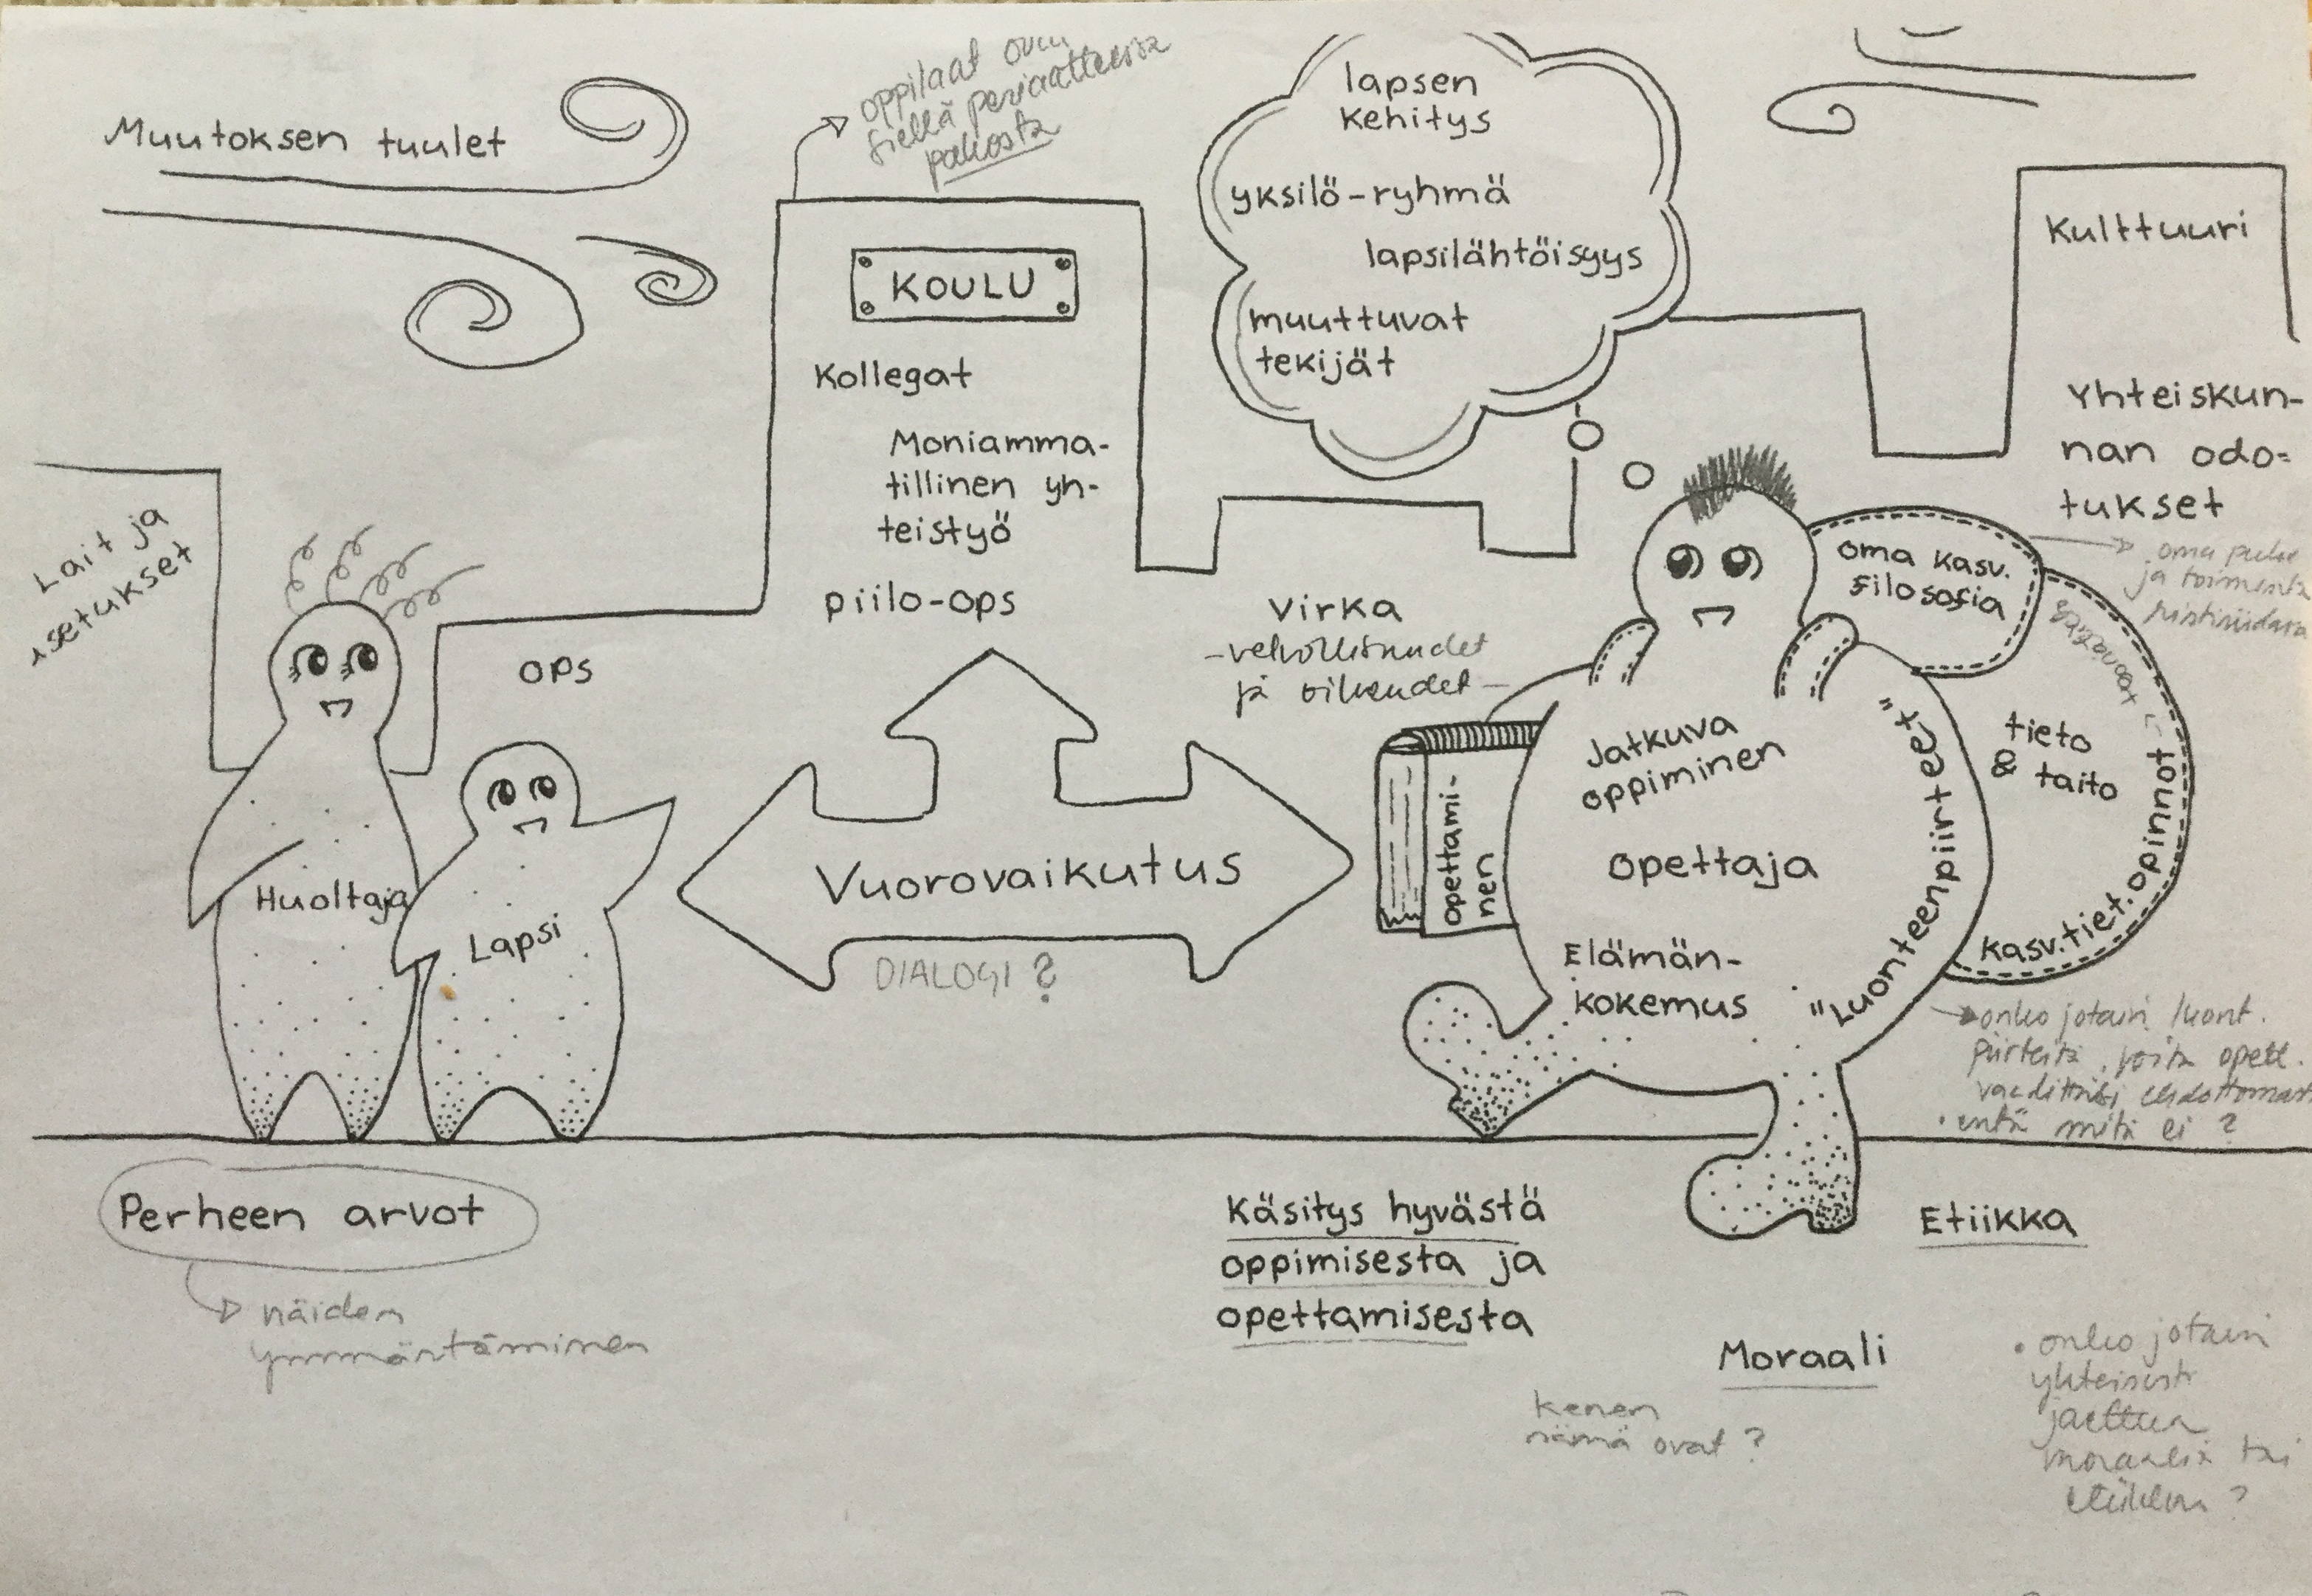 Muutoksen tuulet
oppilaat
siellä periaatteessa
pakosta
lapsen
kehitys
yksilö-ryhmä
lapsilähtöisyys
muuttuvat
tekijät
KOULU
Kollegat
Moniamma-
tillinen yh-
teistyö
piilo-ops
Kulttuuri
Yhteiskun-
nan odo-
tukset
oma puhe
ja toiminta
ristiriidassa
Lait ja
asetukset
ops
Virka
-velvollisuudet
ja oikeudet-
oma kasv.
filosofia
tieto
& taito
kasv.tiet.opinnot
Jatkuva
oppiminen
opettaja
Elämän-
kokemus
"Luonteenpiirteet"
opettami-
nen
Huoltaja
Lapsi
Vuorovaikutus
DIALOGI ?
onko jotain luont.
piirteitä, joita opett.
vaadittaisi ehdottomasti
• entä mitä ei ?
Perheen arvot
näiden
ymmärtäminen
Käsitys hyvästä
oppimisesta ja
opettamisesta
Etiikka
Moraali
kenen
nämä ovat ?
• onko jotain
yhteisesti
jaettua
moraalia tai
etiikkaa ?